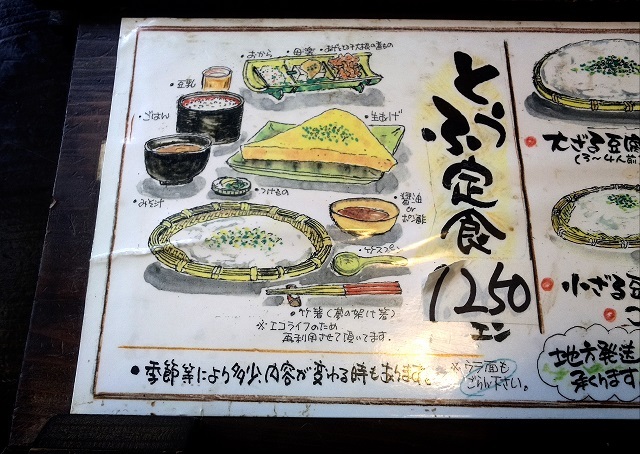 ・おから
・豆乳
・ごはん
・生あげ
・みそ汁
・つけもの
・醤油
or
・竹箸(夢の架け箸)
※エコライフのため
再利用させて頂いてます。
とうふ定食
1250
エン
・季節等により多少、内容が変わる時もあります。
※ウラ面も
ごらん下さい。
大ざる豆腐
(3〜4人前
小ざる豆
地方発送
承ります